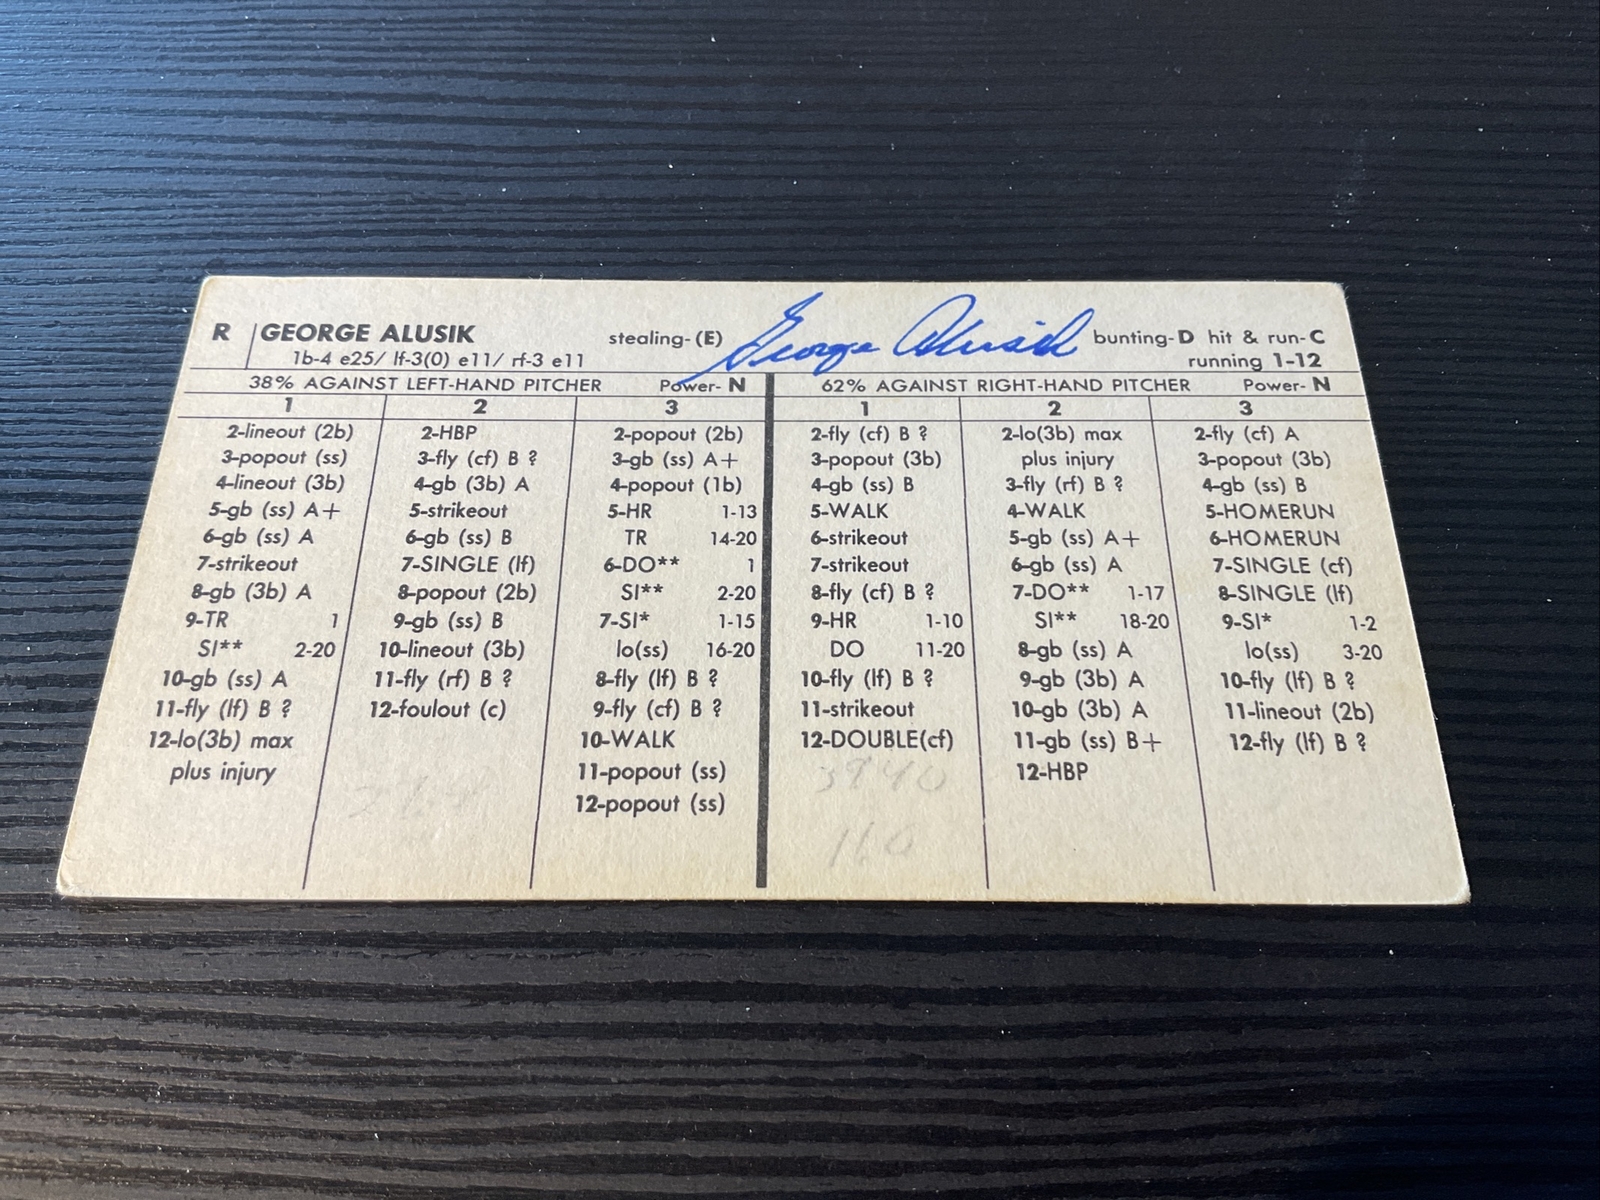 R GEORGE ALUSIK stealing-(E) George Alusik bunting-D hit & run-C
1b-4 e25/ lf-3(0) e11/ rf-3 e11 running 1-12
38% AGAINST LEFT-HAND PITCHER Power-N 62% AGAINST RIGHT-HAND PITCHER Power-N
1 2 3 1 2 3
2-lineout (2b) 2-HBP 2-popout (2b) 2-fly (cf) B ? 2-lo(3b) max 2-fly (cf) A
3-popout (ss) 3-fly (cf) B ? 3-gb (ss) A+ 3-popout (3b) plus injury 3-popout (3b)
4-lineout (3b) 4-gb (3b) A 4-popout (1b) 4-gb (ss) B 3-fly (rf) B ? 4-gb (ss) B
5-gb (ss) A+ 5-strikeout 5-HR 1-13 5-WALK 4-WALK 5-HOMERUN
6-gb (ss) A 6-gb (ss) B TR 14-20 6-strikeout 5-gb (ss) A+ 6-HOMERUN
7-strikeout 7-SINGLE (lf) 6-DO** 1 7-strikeout 6-gb (ss) A 7-SINGLE (cf)
8-gb (3b) A 8-popout (2b) SI** 2-20 8-fly (cf) B ? 7-DO** 1-17 8-SINGLE (lf)
9-TR 1 9-gb (ss) B 7-SI* 1-15 9-HR 1-10 SI** 18-20 9-SI* 1-2
SI** 2-20 10-lineout (3b) lo(ss) 16-20 DO 11-20 8-gb (ss) A lo(ss) 3-20
10-gb (ss) A 11-fly (rf) B ? 8-fly (lf) B ? 10-fly (lf) B ? 9-gb (3b) A 10-fly (lf) B ?
11-fly (lf) B ? 12-foulout (c) 9-fly (cf) B ? 11-strikeout 10-gb (3b) A 11-lineout (2b)
12-lo(3b) max 10-WALK 12-DOUBLE(cf) 11-gb (ss) B+ 12-fly (lf) B ?
plus injury 11-popout (ss) 12-HBP
12-popout (ss)